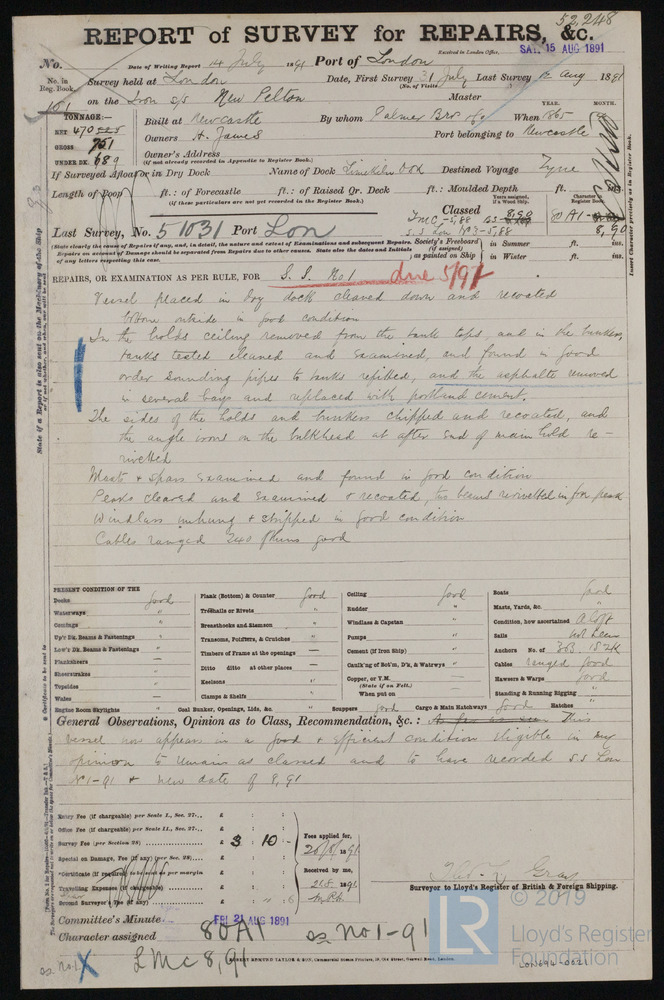 52,248
REPORT of SURVEY for REPAIRS, &c.
Received in London Office, SAT. 15 AUG 1891
No. Date of Writing Report 14 July 1891 Port of London
No. in Reg. Book. Survey held at London Date, First Survey 31 July Last Survey 12 Aug 1891
(No. of Visits)
on the Iron s/s New Pelton Master
TONNAGE:—
NET 470
GROSS 751
UNDER DK. 689
Built at Newcastle By whom Palmer Bros & Co When 1865
YEAR. MONTH.
Owners H. James Port belonging to Newcastle
Owner's Address
(if not already recorded in Appendix to Register Book.)
If Surveyed Afloat or in Dry Dock Name of Dock Limekiln Dk Destined Voyage Tyne
Length of Poop ft.: of Forecastle ft.: of Raised Qr. Deck ft.: Moulded Depth ft. ins.
(if these particulars are not yet recorded in the Register Book.)
Classed
Years assigned, if a Wood Ship.
Character in Register Book
80 A1
8,90
Last Survey, No. 51031 Port Lon
(State clearly the cause of Repairs if any, and, in detail, the nature and extent of Examinations and subsequent Repairs.
Repairs on account of Damage should be separated from Repairs due to other causes. State also the dates and initials
of any letters respecting this case.
Society's Freeboard (if assigned) as painted on Ship
in Summer ft. ins.
in Winter ft. ins.
Insert Character precisely as in Register Book.
REPAIRS, OR EXAMINATION AS PER RULE, FOR S.S. No 1 done 5/91
Vessel placed in dry dock cleaned down and recoated
bottom outside in good condition
In the holds ceiling removed from the tank tops, and in the bunkers,
tanks tested cleaned and examined, and found in good
order sounding pipes to tanks refitted, and the asphalte removed
in several bays and replaced with portland cement.
The sides of the holds and bunkers chipped and recoated, and
the angle irons on the bulkhead at after end of main hold re-
rivetted
Masts & Spars examined and found in good condition
Peaks cleared and examined & recoated, two beams rerivetted in fore peak
Windlass unhung & stripped in good condition
Cables ranged 240 fthms good
PRESENT CONDITION OF THE
Decks good
Waterways "
Comings "
Up'r Dk. Beams & Fastenings "
Low'r Dk. Beams & Fastenings —
Planksheers —
Sheerstrakes —
Topsides —
Wales —
Engine Room Skylights "
Plank (Bottom) & Counter good
Treenails or Rivets "
Breasthooks and Stemson "
Transoms, Pointers, & Crutches "
Timbers of Frame at the openings —
Ditto ditto at other places —
Keelsons "
Clamps & Shelfs "
Coal Bunker, Openings, Lids, &c. "
Ceiling good
Rudder "
Windlass & Capstan "
Pumps "
Cement (if Iron Ship) "
Caulk'ng of Bot'm, D'k, & Watrwys "
Copper, or Y.M. —
(State if on Felt.)
When put on
Scuppers good
Cargo & Main Hatchways good
Boats good
Masts, Yards, &c. "
Condition, how ascertained aloft
Sails
Anchors No. of 3B. 1S 2K
Cables ranged good
Hawsers & Warps good
Standing & Running Rigging "
Hatches "
General Observations, Opinion as to Class, Recommendation, &c.: This
vessel now appears in a good & efficient condition eligible in my
opinion to remain as classed and to have recorded S.S Lon
No 1-91 & new date of 8,91
Entry Fee (if chargeable) per Scale I., Sec. 27. £ : :
Office Fee (if chargeable) per Scale II., Sec. 27. £ : :
Survey Fee (per Section 28) £ 3 : 10 : -
Special on Damage, Fee (if any) (per Sec. 28) £ : :
*Certificate (if required) to be sent as per margin £ : :
Travelling Expenses (if chargeable) £ : :
Second Surveyor's Fee (if any) £ : :
Fees applied for,
Received by me,
Surveyor to Lloyd's Register of British & Foreign Shipping.
Committee's Minute FRI. 21 AUG 1891
Character assigned 80A1 ss No1-91
LMC 8,91
© 2019
LR
Lloyd's Register
Foundation
LON694-0021